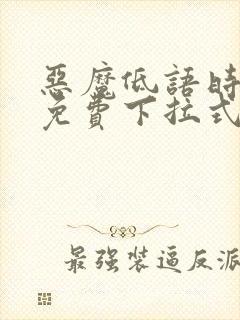 惡魔低語時
免費下拉式
最強裝逼反派